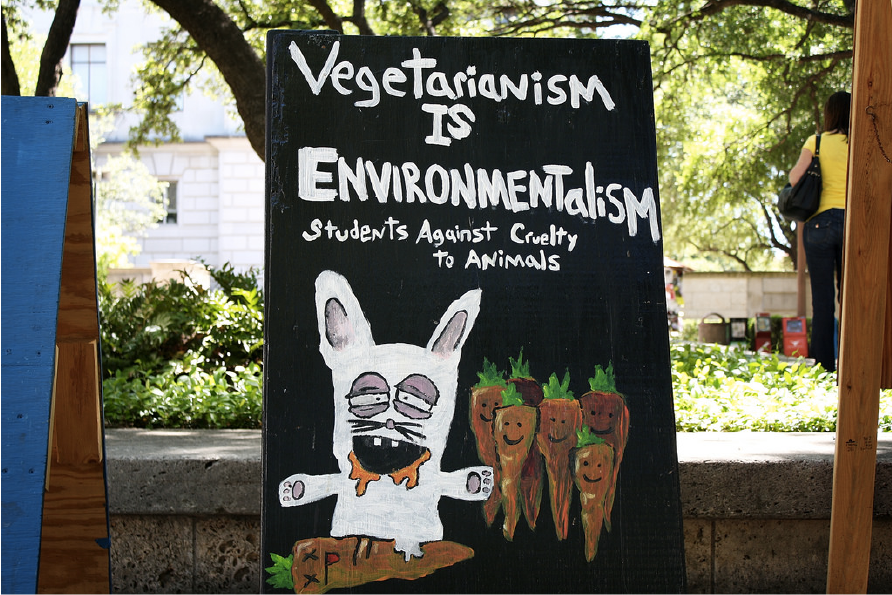 Vegetarianism
IS
ENVIRONMENTalISM
Students Against Cruelty
to Animals